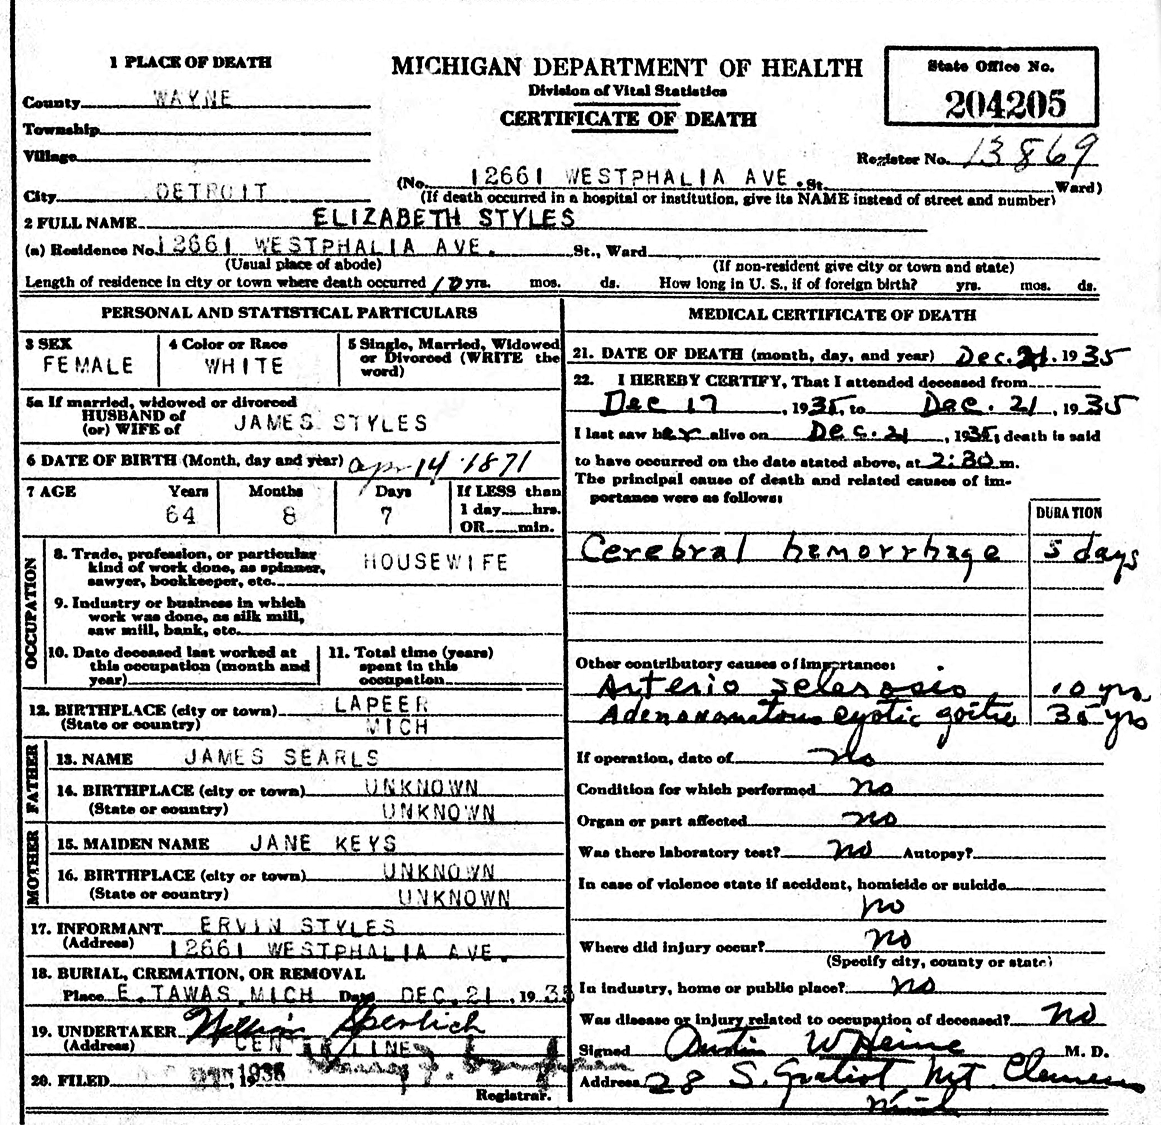 1 PLACE OF DEATH
MICHIGAN DEPARTMENT OF HEALTH
Division of Vital Statistics
CERTIFICATE OF DEATH
State Office No.
204205
Register No. 13869
County WAYNE
Township
Village
City DETROIT
(No. 12661 WESTPHALIA AVE. St. Ward)
(If death occurred in a hospital or institution, give its NAME instead of street and number)
2 FULL NAME ELIZABETH STYLES
(a) Residence No. 12661 WESTPHALIA AVE. St., Ward
(Usual place of abode) (If non-resident give city or town and state)
Length of residence in city or town where death occurred 10 yrs. mos. ds. How long in U. S., if of foreign birth? yrs. mos. ds.
PERSONAL AND STATISTICAL PARTICULARS
3 SEX
FEMALE
4 Color or Race
WHITE
5 Single, Married, Widowed
or Divorced (WRITE the
word)
5a If married, widowed or divorced
HUSBAND of
(or) WIFE of JAMES STYLES
6 DATE OF BIRTH (Month, day and year) apr 14 1871
7 AGE Years Months Days
64 8 7
If LESS than
1 day hrs.
OR min.
OCCUPATION
8. Trade, profession, or particular
kind of work done, as spinner,
sawyer, bookkeeper, etc. HOUSEWIFE
9. Industry or business in which
work was done, as silk mill,
saw mill, bank, etc.
10. Date deceased last worked at
this occupation (month and
year)
11. Total time (years)
spent in this
occupation
12. BIRTHPLACE (city or town) LAPEER
(State or country) MICH
FATHER
13. NAME JAMES SEARLS
14. BIRTHPLACE (city or town) UNKNOWN
(State or country) UNKNOWN
MOTHER
15. MAIDEN NAME JANE KEYS
16. BIRTHPLACE (city or town) UNKNOWN
(State or country) UNKNOWN
17. INFORMANT ERVIN STYLES
(Address) 12661 WESTPHALIA AVE.
18. BURIAL, CREMATION, OR REMOVAL
Place E. TAWAS MICH Date DEC. 21, 1935
19. UNDERTAKER William Sperlich
(Address) CENTER LINE
20. FILED , 1935
Registrar.
MEDICAL CERTIFICATE OF DEATH
21. DATE OF DEATH (month, day, and year) Dec. 21. 1935
22. I HEREBY CERTIFY, That I attended deceased from
Dec 17, 1935, to Dec. 21, 1935
I last saw her alive on Dec. 21, 1935, death is said
to have occurred on the date stated above, at 2:30 m.
The principal cause of death and related causes of im-
portance were as follows:
DURATION
Cerebral hemorrhage 5 days
Other contributory causes of importance:
Arterio sclerosis 10 yrs
Adenomatous cystic goitre 35 yrs
If operation, date of no
Condition for which performed no
Organ or part affected no
Was there laboratory test? no Autopsy?
In case of violence state if accident, homicide or suicide
no
Where did injury occur? no
(Specify city, county or state)
In industry, home or public place? no
Was disease or injury related to occupation of deceased? no
Signed Austin W Heine M. D.
Address 28 S. Gratiot, Mt. Clemens
Mich